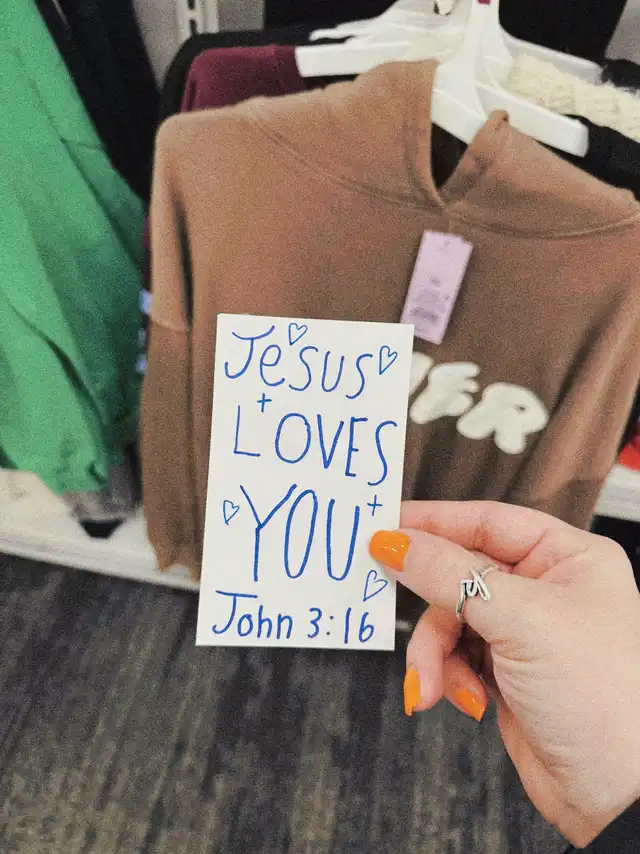 Jesus
LOVES
YOU
John 3:16